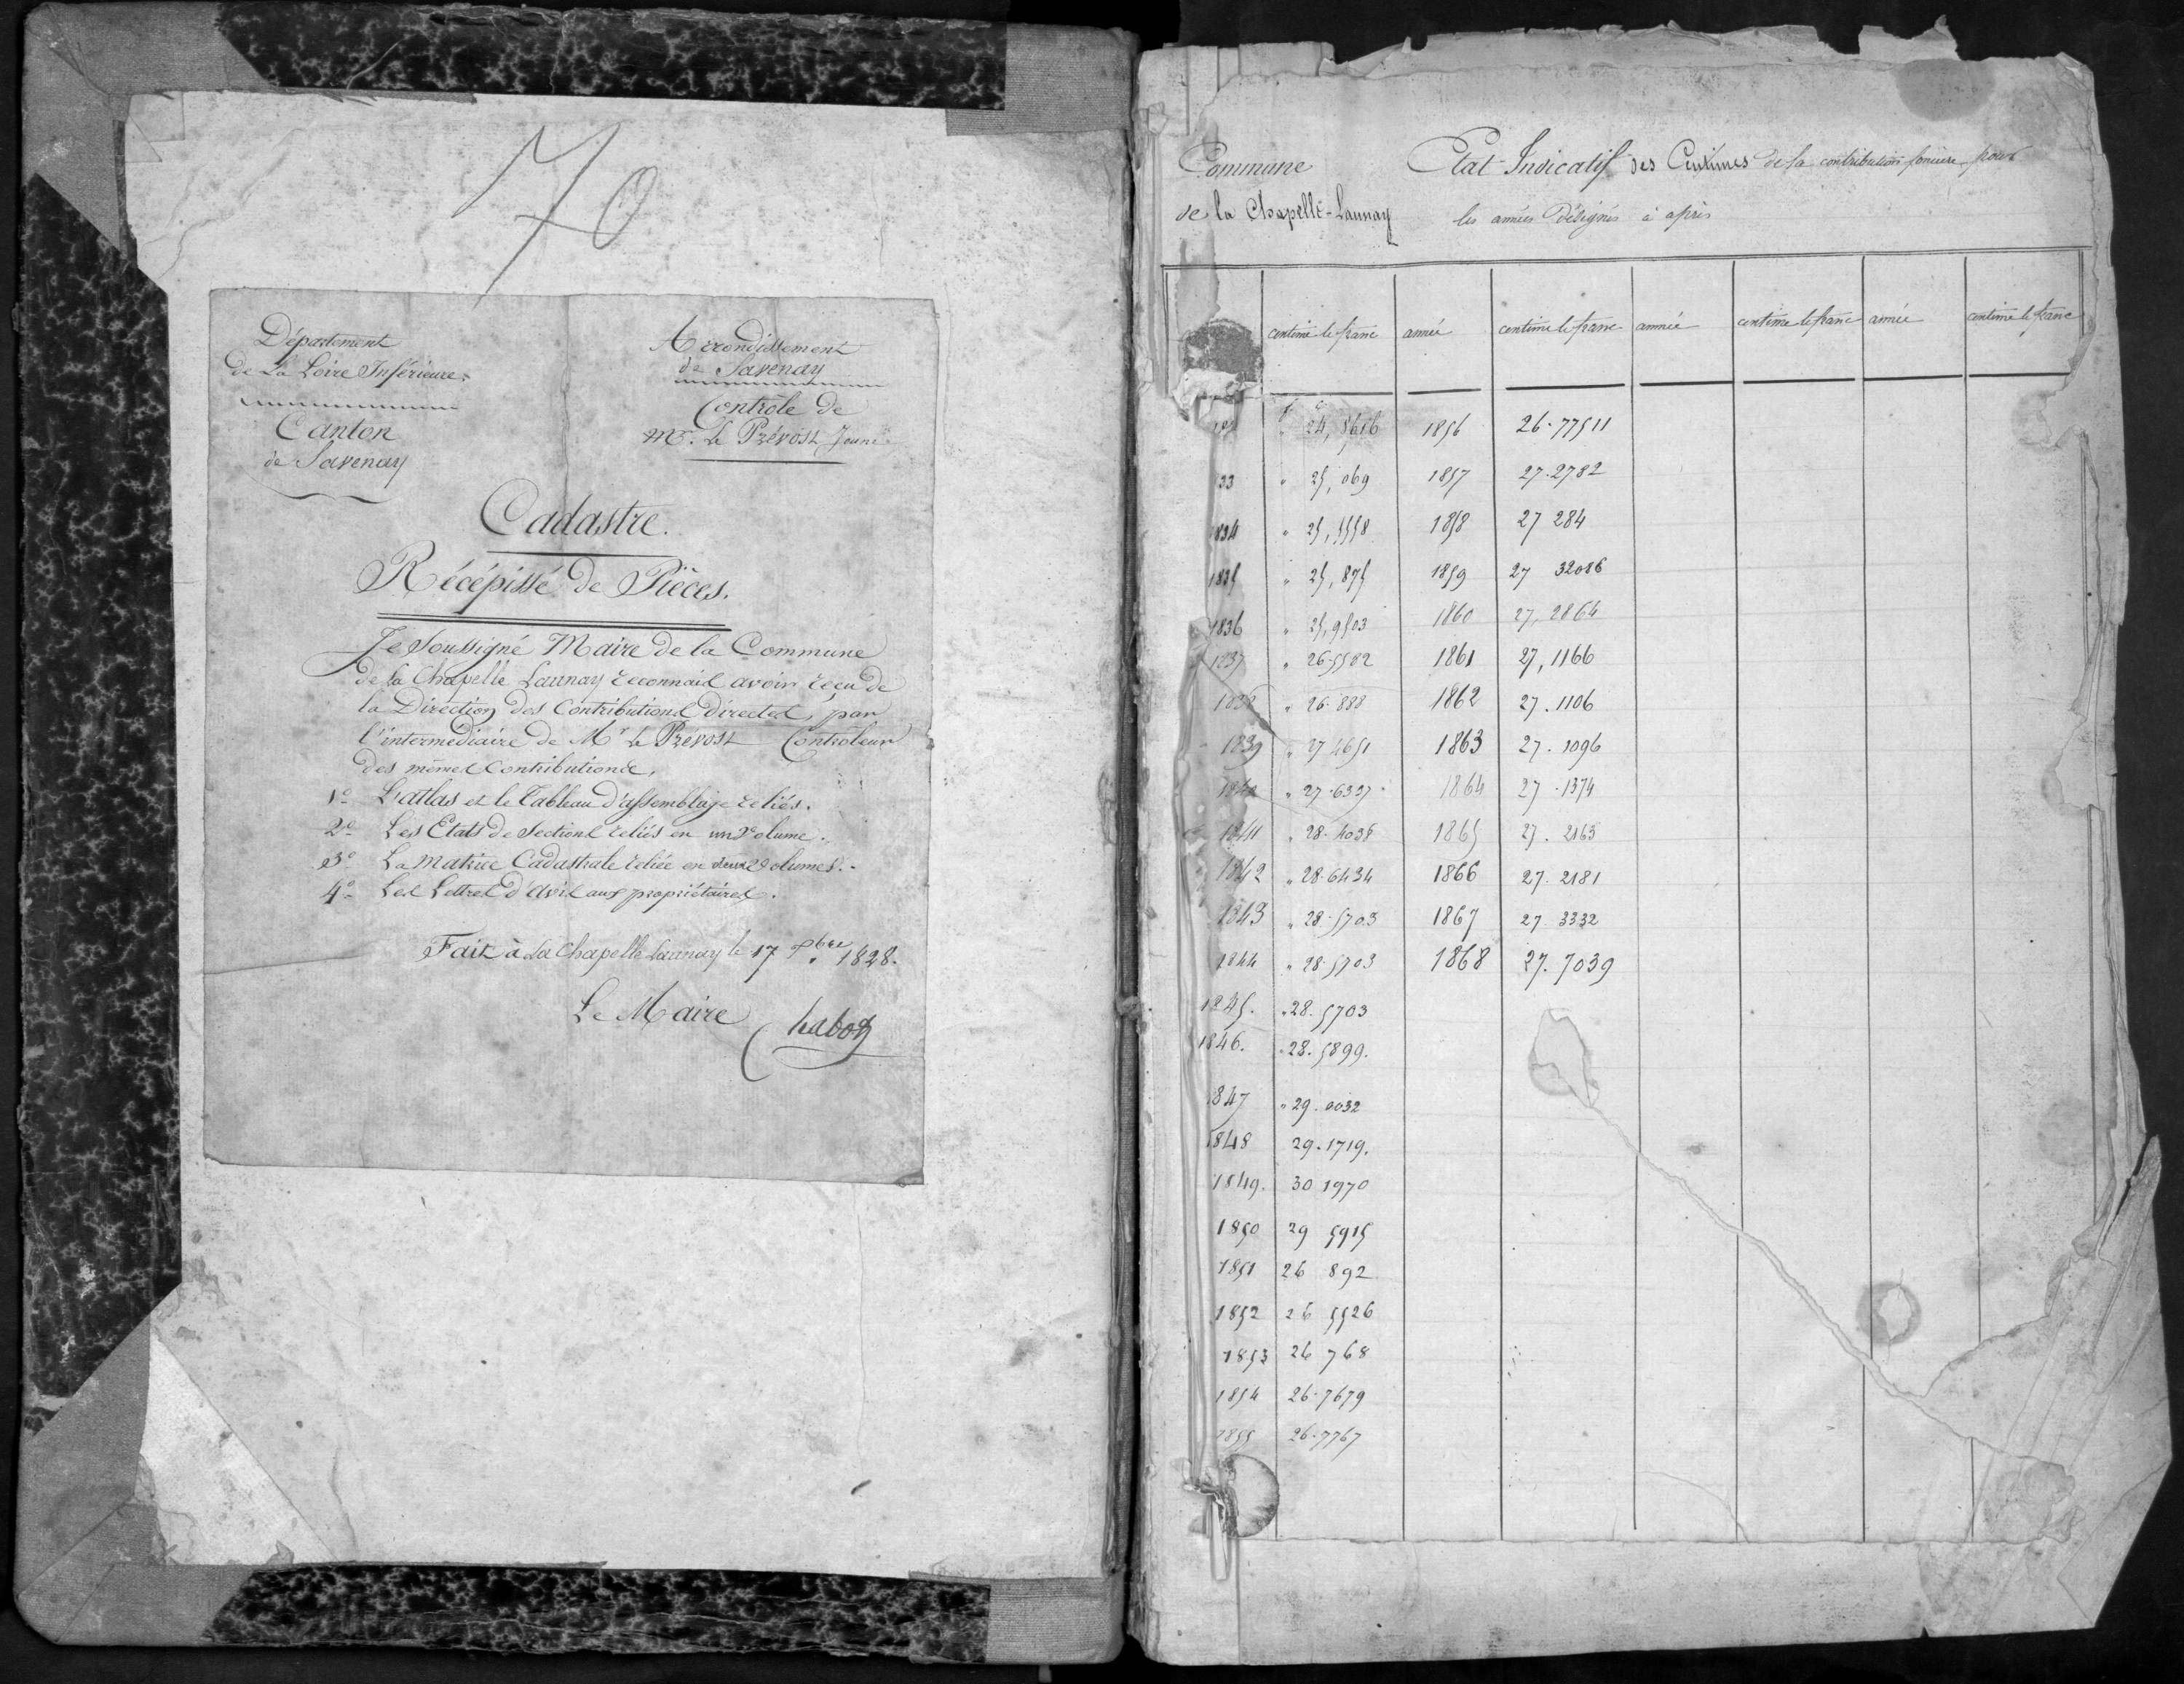 70
Département
de La Loire Inférieure.
Canton
de Savenay
Arrondissement
de Savenay
Contrôle de
Mr. Le Prévost Jeune
Cadastre.
Récépissé de Pièces.
Je Soussigné Maire de la Commune
de la Chapelle Launay reconnais avoir reçu de
la Direction des Contributions directes, par
l'intermédiaire de Mr Le Prévost Controleur
des mêmes Contributions,
1o L'atlas et le Tableau d'assemblage reliés.
2o Les Etats de Sections reliés en un volume.
3o La Matrice Cadastrale reliée en deux volumes.
4o Les Lettres d'avis aux propriétaires.
Fait à La Chapelle Launay le 17 1828.
Le Maire
Commune
de la Chapelle-Launay
Etat Indicatif des Centimes de la contribution foncière pour
les années Désignés ci après
centime le franc année centime le franc année centime le franc année centime le franc
f c
" 24, 5616 1856 26.77511
33 " 25, 069 1857 27.2782
1834 " 25, 5558 1858 27 284
1835 " 25, 875 1859 27 32086
1836 " 25, 9503 1860 27, 2864
1837 " 26.5582 1861 27, 1166
1838 " 26.888 1862 27. 1106
1839 " 27 4651 1863 27. 1096
1840 " 27.6327 1864 27. 1374
1841 " 28. 4038 1865 27. 2163
1842 " 28.6434 1866 27. 2181
1843 " 28.5703 1867 27 3332
1844 " 28.5703 1868 27. 7039
1845. " 28. 5703
1846. " 28. 5899.
1847 " 29. 0032
1848 29.1719.
1849. 30 1970
1850 29 5915
1851 26 892
1852 26 5526
1853 26 768
1854 26.7679
1855 26.7767